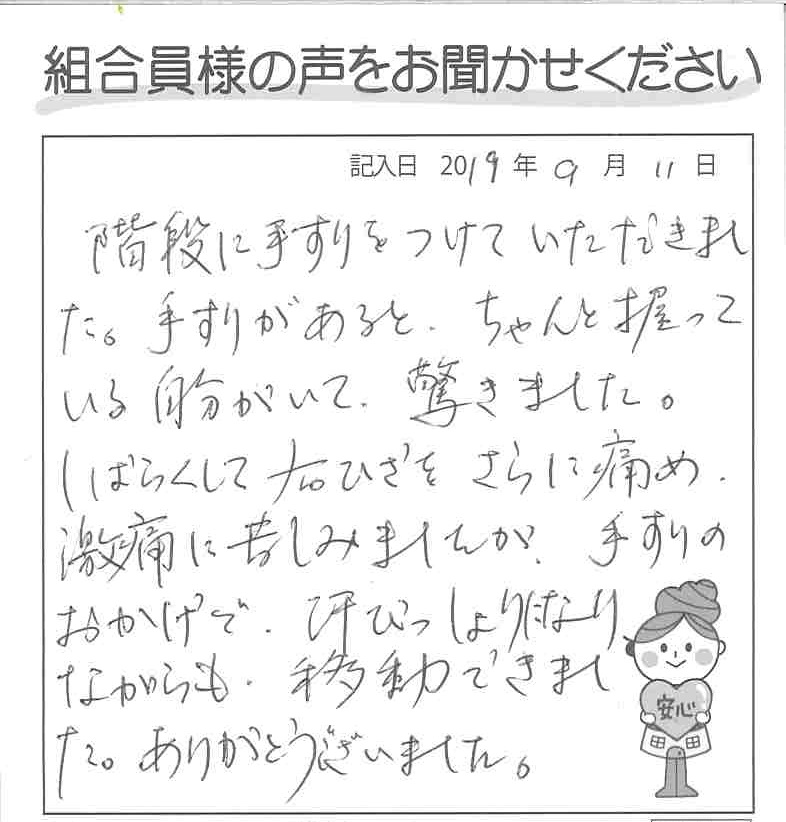 組合員様の声をお聞かせください
記入日 2019年 9月 11日
階段に手すりをつけていただきまし
た。手すりがあると、ちゃんと握って
いる自分がいて、驚きました。
しばらくして右ひざをさらに痛め、
激痛に苦しみましたが、手すりの
おかげで、汗びっしょりになり
ながらも、移動できまし
た。ありがとうございました。
安心